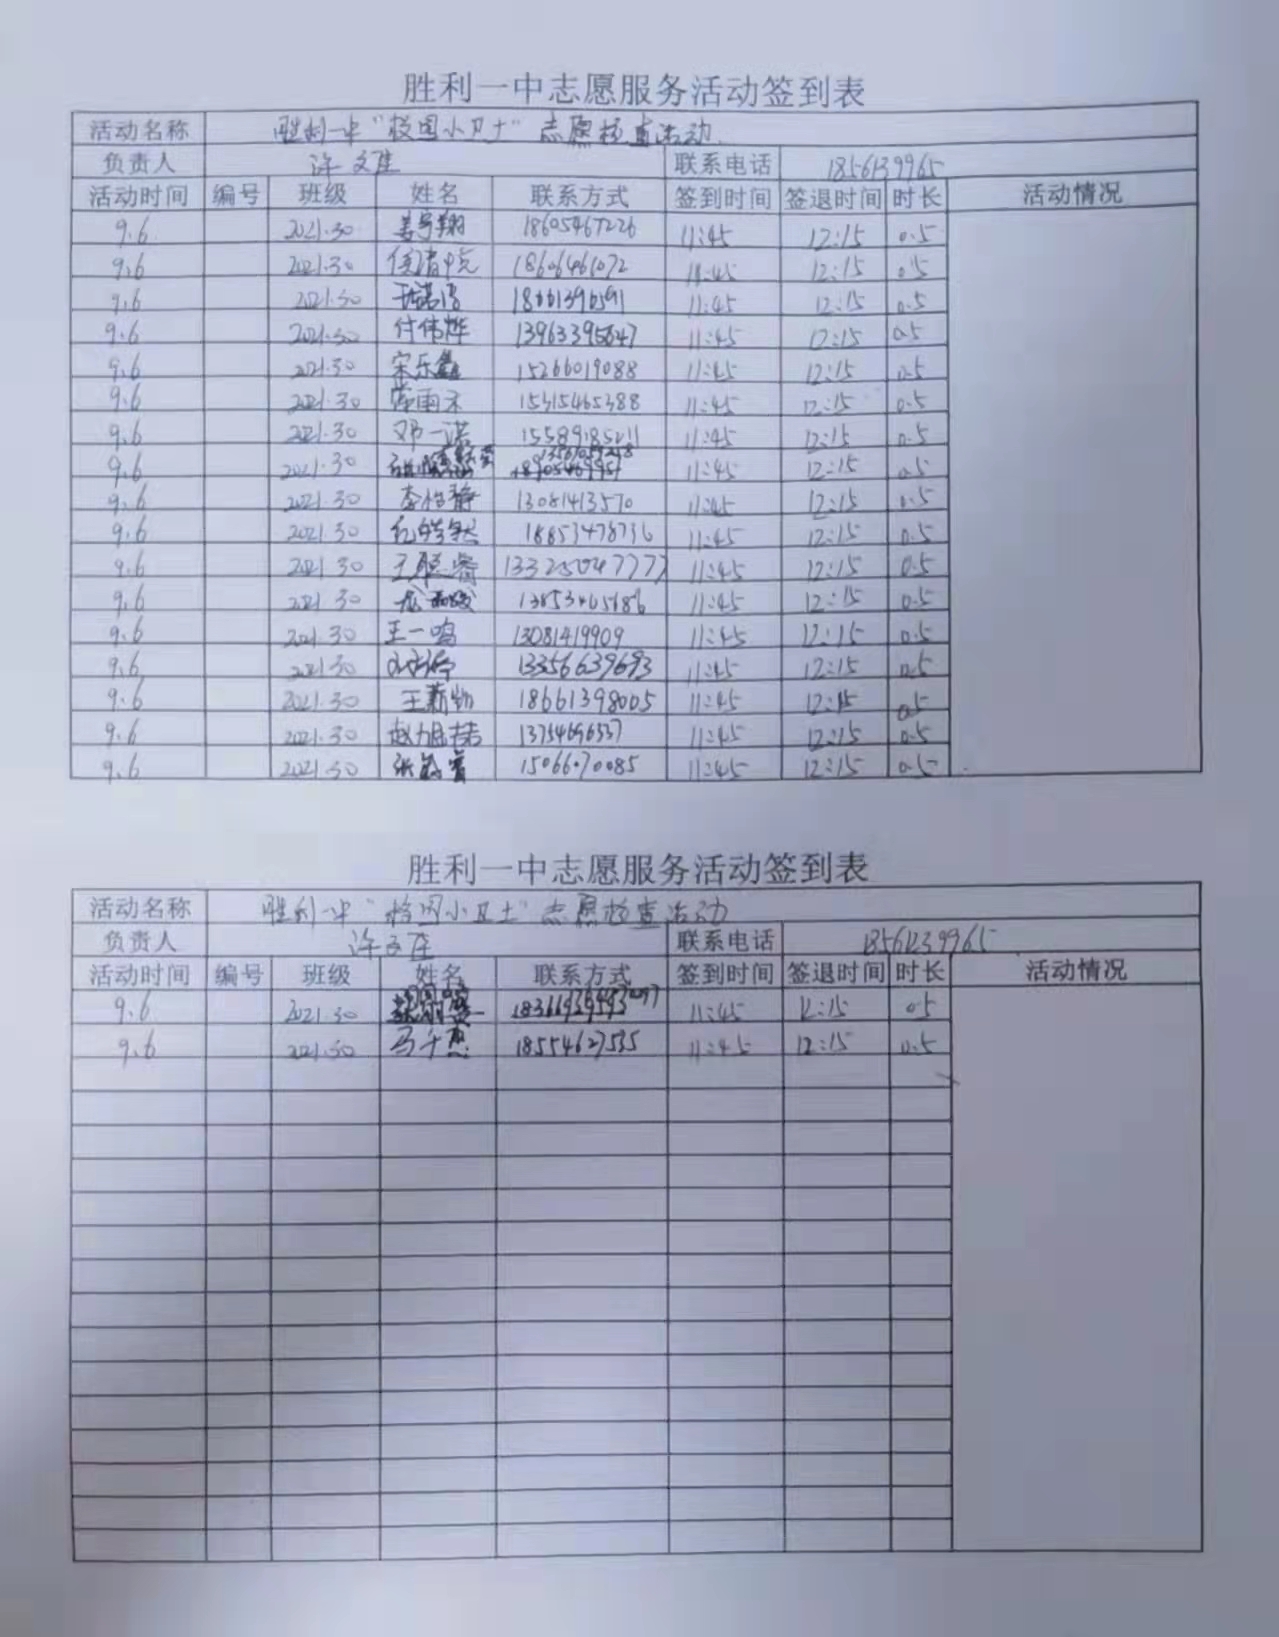 胜利一中志愿服务活动签到表
活动名称 胜利一中“校园小卫士”志愿检查活动
负责人 许文 联系电话 1856139965
活动时间 编号 班级 姓名 联系方式 签到时间 签退时间 时长 活动情况
9.6 2021.30 姜宇翔 18605467226 11:45 12:15 0.5
9.6 2021.30 11:45 12:15 0.5
9.6 2021.30 11:45 12:15 0.5
9.6 2021.30 付伟烨 11:45 12:15 0.5
9.6 2021.30 宋乐鑫 15266019088 11:45 12:15 0.5
9.6 2021.30 15315465388 11:45 12:15 0.5
9.6 2021.30 邓一诺 15589185211 11:45 12:15 0.5
9.6 2021.30 11:45 12:15 0.5
9.6 2021.30 李怡静 13081413570 11:45 12:15 0.5
9.6 2021.30 18853478736 11:45 12:15 0.5
9.6 2021.30 王聪睿 13325047777 11:45 12:15 0.5
9.6 2021.30 11:45 12:15 0.5
9.6 2021.30 王一鸣 13081419909 11:45 12:15 0.5
9.6 2021.30 13356639693 11:45 12:15 0.5
9.6 2021.30 18661398005 11:45 12:15 0.5
9.6 2021.30 13754696537 11:45 12:15 0.5
9.6 2021.30 15066070085 11:45 12:15 0.5
胜利一中志愿服务活动签到表
活动名称 胜利一中“校园小卫士”志愿检查活动
负责人 许文 联系电话 18561239965
活动时间 编号 班级 姓名 联系方式 签到时间 签退时间 时长 活动情况
9.6 2021.30 11:45 12:15 0.5
9.6 2021.30 马千惠 18554627535 11:45 12:15 0.5